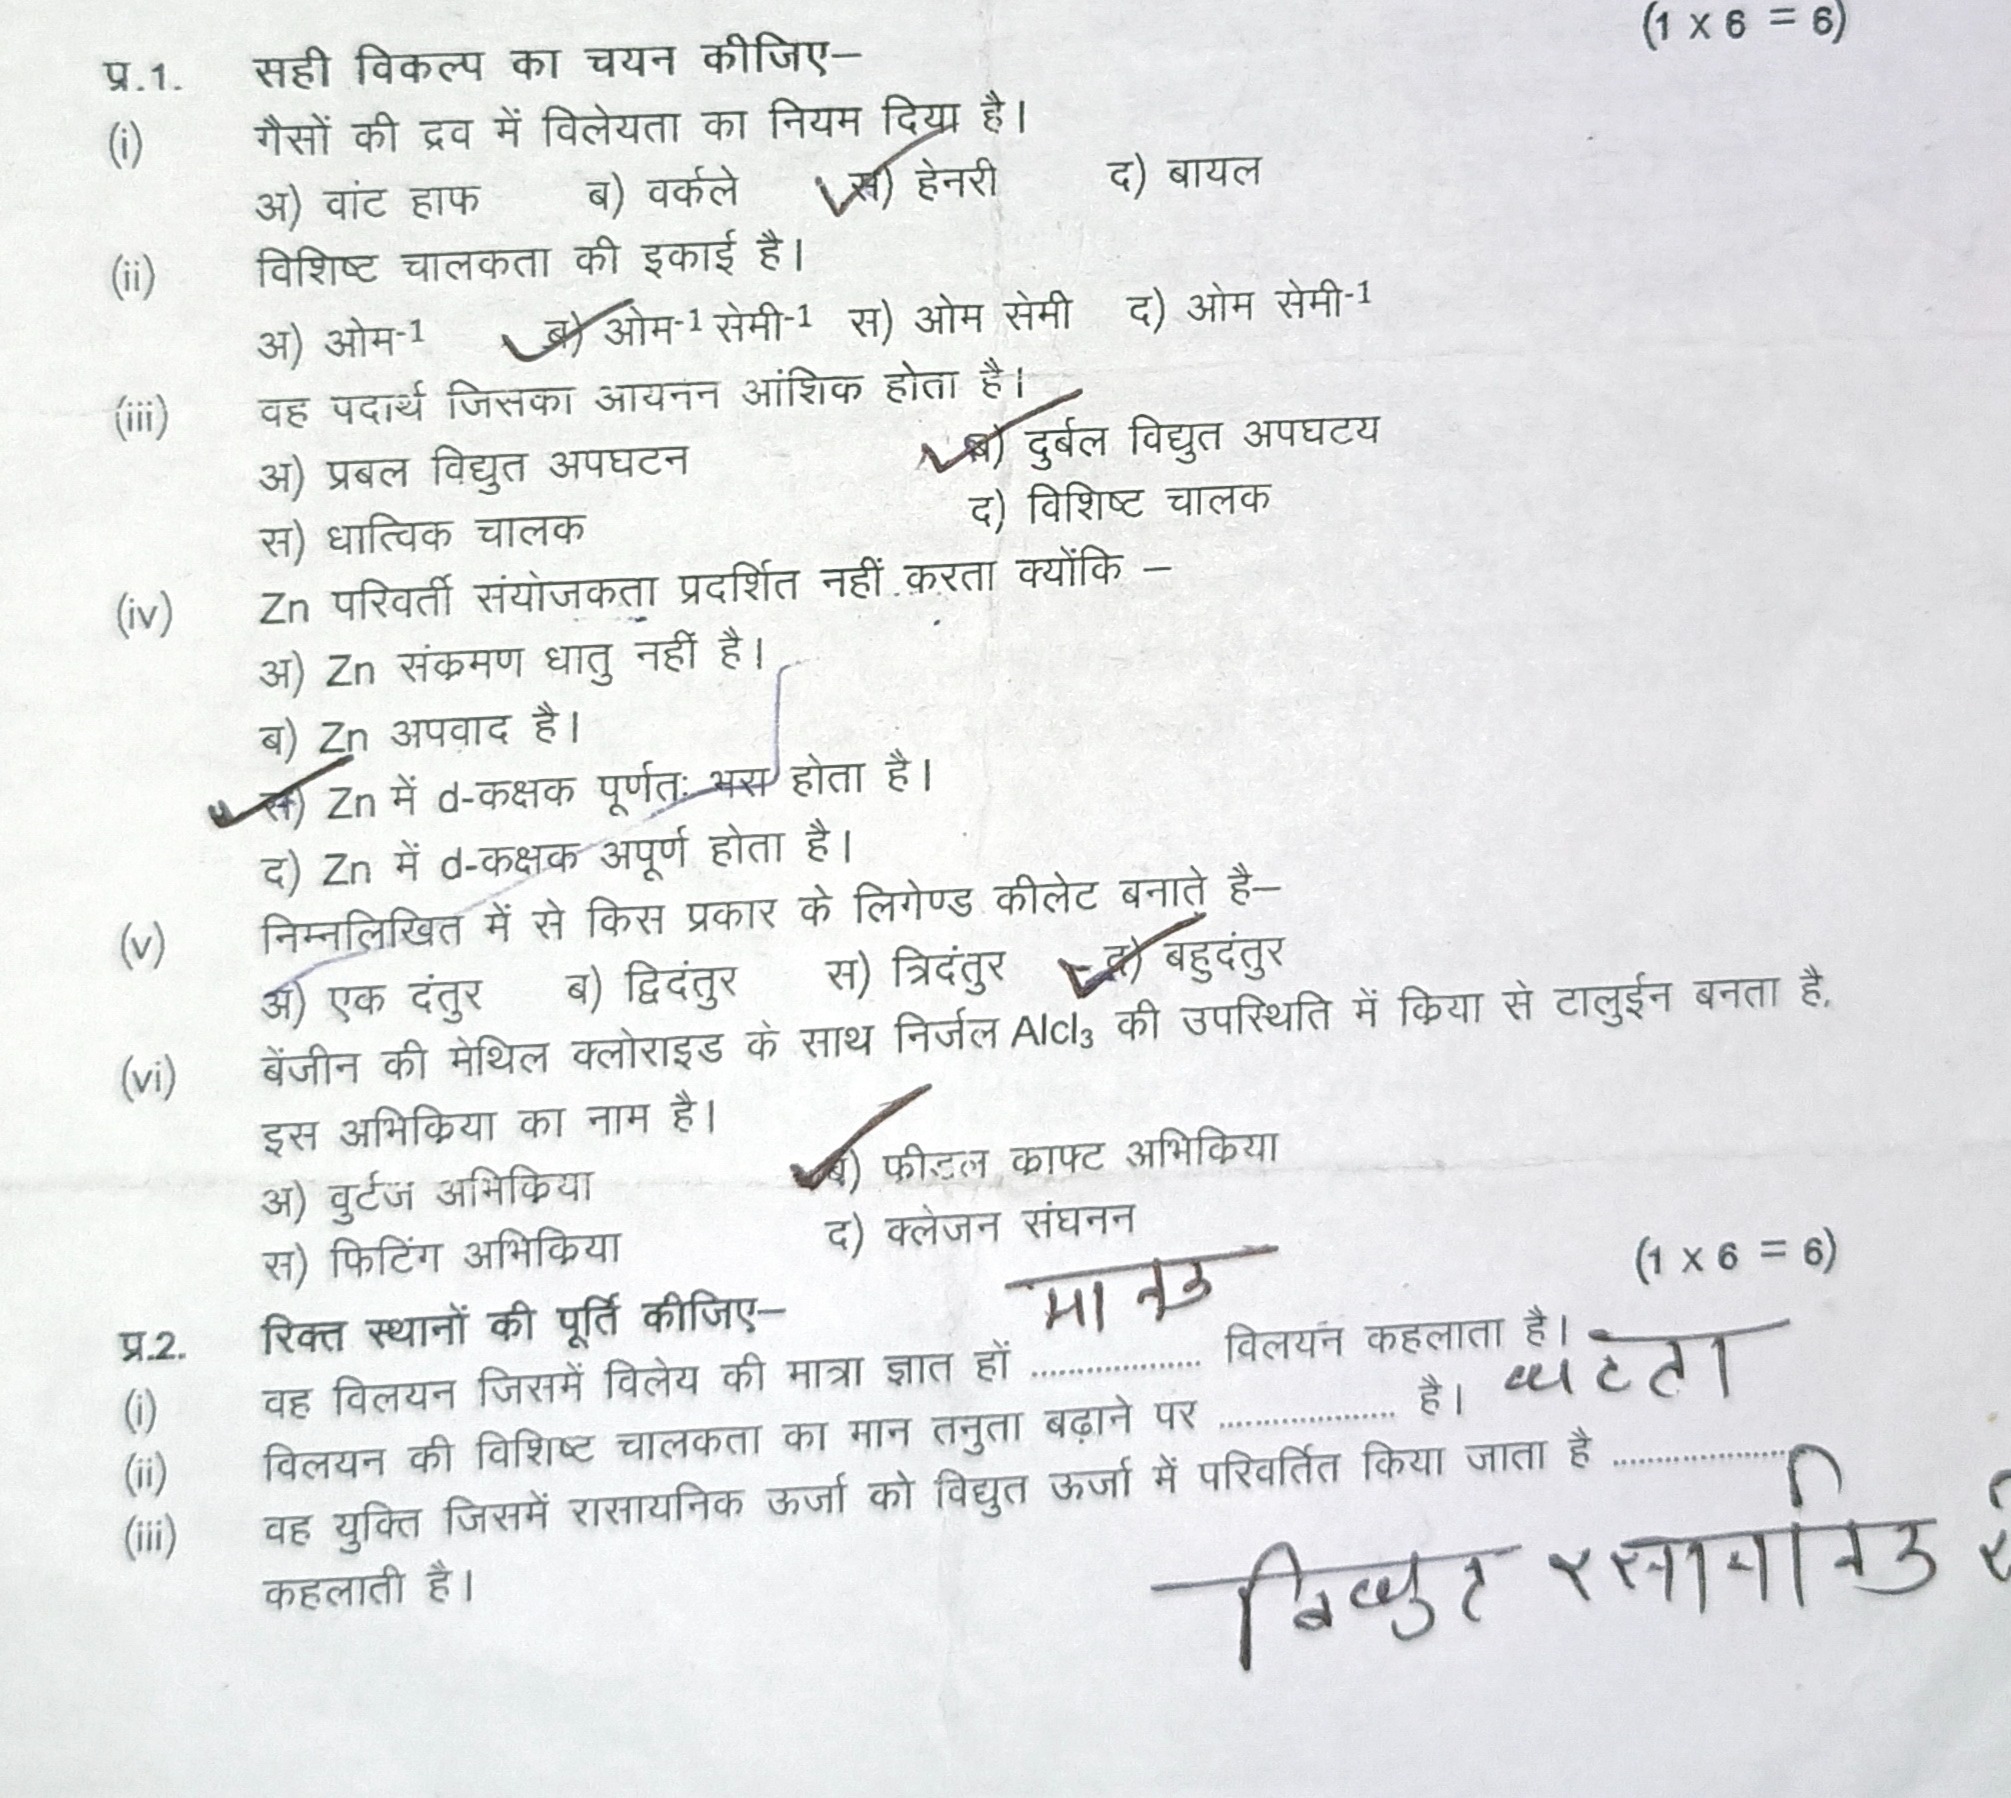 (1 x 6 = 6)
प्र.1. सही विकल्प का चयन कीजिए–
(i) गैसों की द्रव में विलेयता का नियम दिया है।
अ) वांट हाफ ब) वर्कले स) हेनरी द) बायल
(ii) विशिष्ट चालकता की इकाई है।
अ) ओम-1 ब) ओम-1 सेमी-1 स) ओम सेमी द) ओम सेमी-1
(iii) वह पदार्थ जिसका आयनन आंशिक होता है।
अ) प्रबल विद्युत अपघटन ब) दुर्बल विद्युत अपघटय
स) धात्विक चालक द) विशिष्ट चालक
(iv) Zn परिवर्ती संयोजकता प्रदर्शित नहीं करता क्योंकि –
अ) Zn संक्रमण धातु नहीं है।
ब) Zn अपवाद है।
स) Zn में d-कक्षक पूर्णतः भरा होता है।
द) Zn में d-कक्षक अपूर्ण होता है।
(v) निम्नलिखित में से किस प्रकार के लिगेण्ड कीलेट बनाते है–
अ) एक दंतुर ब) द्विदंतुर स) त्रिदंतुर द) बहुदंतुर
(vi) बेंजीन की मेथिल क्लोराइड के साथ निर्जल Alcl3 की उपस्थिति में क्रिया से टालुईन बनता है,
इस अभिक्रिया का नाम है।
अ) वुर्टज अभिक्रिया ब) फ्रीडल क्राफ्ट अभिक्रिया
स) फिटिंग अभिक्रिया द) क्लेजन संघनन
(1 x 6 = 6)
प्र.2. रिक्त स्थानों की पूर्ति कीजिए–
मानक
(i) वह विलयन जिसमें विलेय की मात्रा ज्ञात हों .................. विलयन कहलाता है।
घटता
(ii) विलयन की विशिष्ट चालकता का मान तनुता बढ़ाने पर .................. है।
(iii) वह युक्ति जिसमें रासायनिक ऊर्जा को विद्युत ऊर्जा में परिवर्तित किया जाता है ..................
कहलाती है।
विद्युत रसायनिक